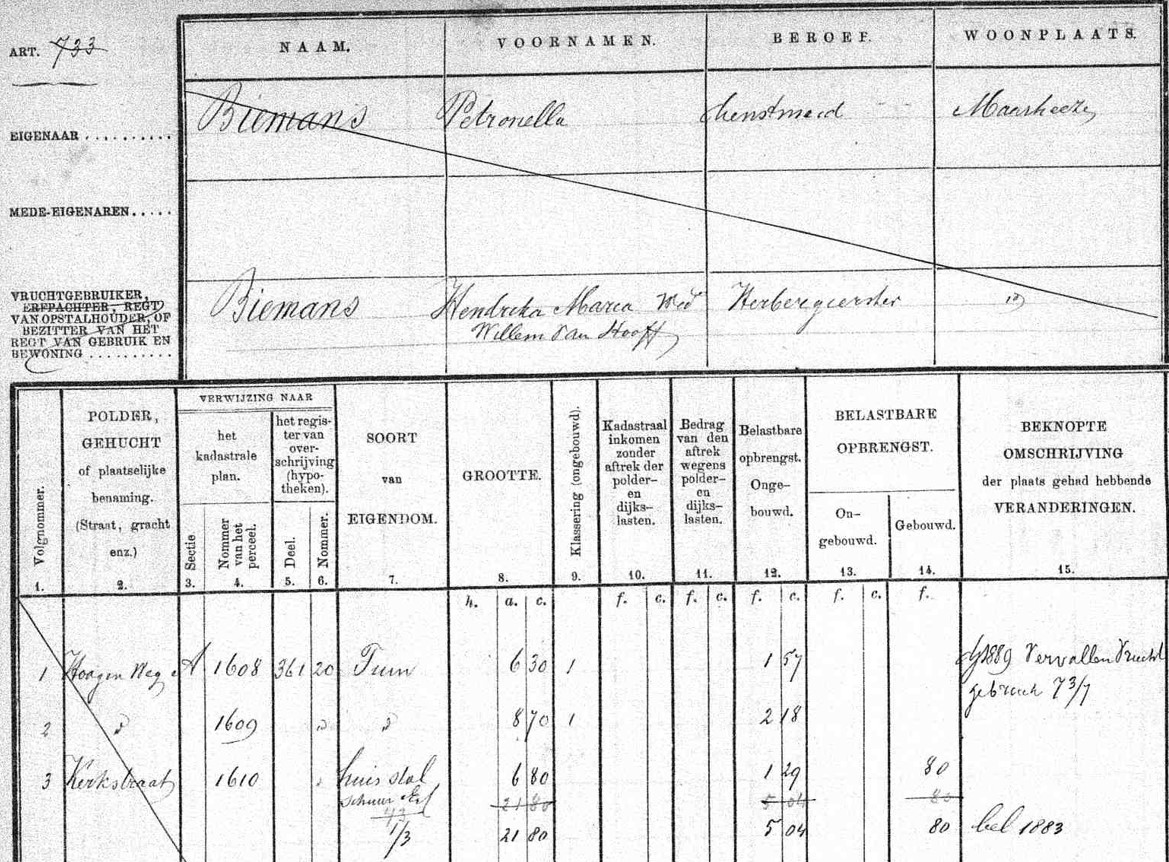 ART. 733
NAAM. VOORNAMEN. BEROEF. WOONPLAATS.
EIGENAAR .......... Biemans Petronella dienstmeid Maarheeze
MEDE-EIGENAREN.....
VRUCHTGEBRUIKER,
ERFPACHTER, REGT
VAN OPSTALHOUDER, OF
BEZITTER VAN HET
REGT VAN GEBRUIK EN
BEWONING ..........
Biemans Hendreka Maria Wed Herbergierster id
Willem Van Hooff
Volgnommer.
1.
POLDER,
GEHUCHT
of plaatselijke
benaming.
(Straat, gracht
enz.)
2.
VERWIJZING NAAR
het
kadastrale
plan.
het regis-
ter van
over-
schrijving
(hypo-
theken).
Sectie.
3.
Nommer
van het
perceel.
4.
Deel.
5.
Nommer.
6.
SOORT
van
EIGENDOM.
7.
GROOTTE.
8.
Klassering (ongebouwd).
9.
Kadastraal
inkomen
zonder
aftrek der
polder-
en
dijks-
lasten.
10.
Bedrag
van den
aftrek
wegens
polder-
en
dijks-
lasten.
11.
Belastbare
opbrengst.
Onge-
bouwd.
12.
BELASTBARE
OPBRENGST.
On-
gebouwd.
13.
Gebouwd.
14.
BEKNOPTE
OMSCHRIJVING
der plaats gehad hebbende
VERANDERINGEN.
15.
h. a. c. f. c. f. c. f. c. f. c. f.
1 Hoogen Weg A 1608 361 20 Tuin 6 30 1 1 57 dj 1889 Vervallen Vrucht
gebruik 73/7
2 " 1609 " " 8 70 1 2 18
3 Kerkstraat 1610 " huis stal 6 80 1 29 80
schuur Erf 21 80 5 04 80
1/3 21 80 5 04 80 bel 1883